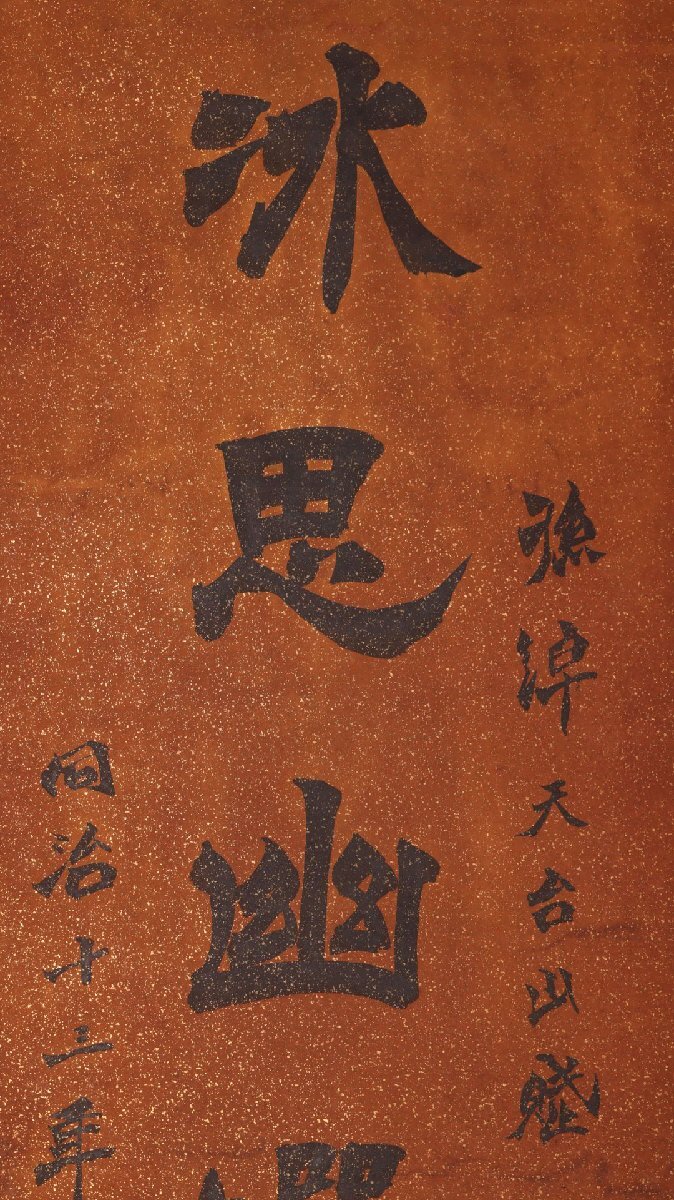 孫綽天台山賦
冰思幽
同治十三年